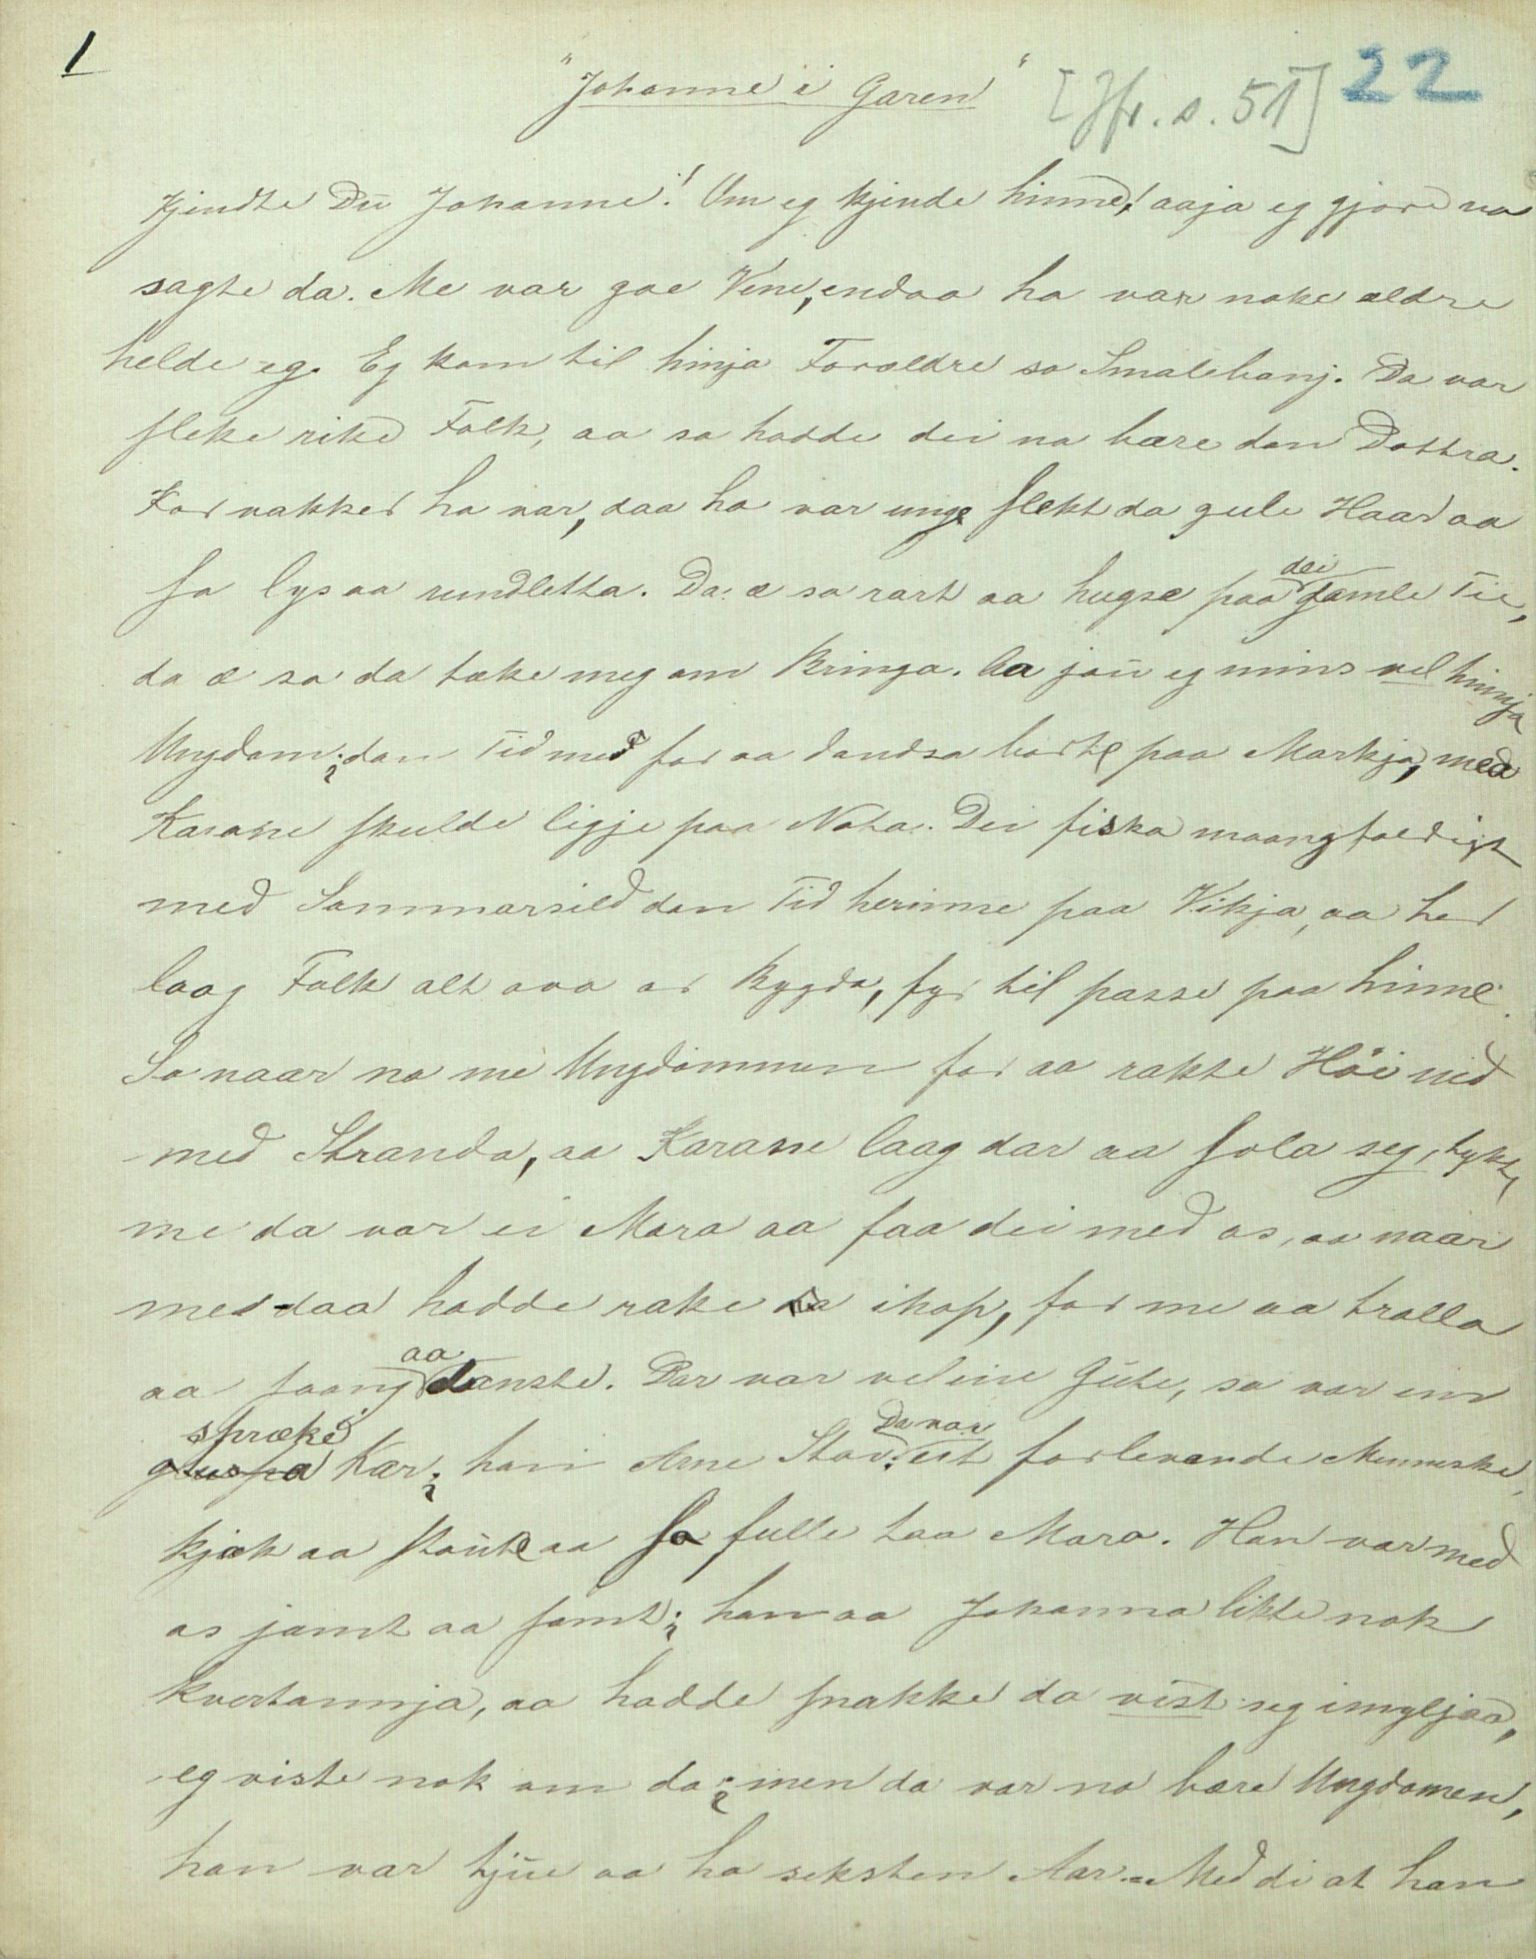 1
"Johanne i Garen"
[Jfr. s. 51] 22
Kjendte Du Johanne! Om eg kjende hinne! aaja eg gjore no
sagte da. Me var goe Vene, endaa ho var noke ældre
helde eg. Eg kom til hinja Foreldre so Smalebanj. Da var
sleke rike Folk, aa so hadde dei no bære don Dottra.
Kor vakker ho var, daa ho var unge slekt da gule Haar aa
so lys aa rundletta. Da æ so rart aa hugse paa dei gamle Tie,
da æ so da take meg om Bringa. Aa jau eg mins vel hinnja
Ungdom; dan Tid me for aa dandsa borte paa Markja, med
Karane skulde ligje paa Nota. Dei fiska maangfoldigt
med Sommarsild dan Tid herinne paa Vikja, aa her
laag Folk alt ova or Bygda, fyr til passe paa hinne.
So naar no me Ungdommen for aa rakte Höi ned
med Stranda, aa Karane laag dar aa sola seg, tykte
me da var ei Mora aa faa dei med os, aa naar
me daa hadde rake ihop, for me aa tralla
aa saang aa danste. Dar var vel ine Gute, so var em
spræke Kar; han Arne Stor. Da var eit forlevande Menneske,
kjæk aa staut aa so fulle taa Moro. Han var med
os jamt aa samt; han aa Johanna likte nok
kvertannja, aa hadde snakke da vist seg imyljaa,
eg viste nok om da; men da var no bære Ungdomen,
han var tjue aa ho seksten Aar. Med di at han